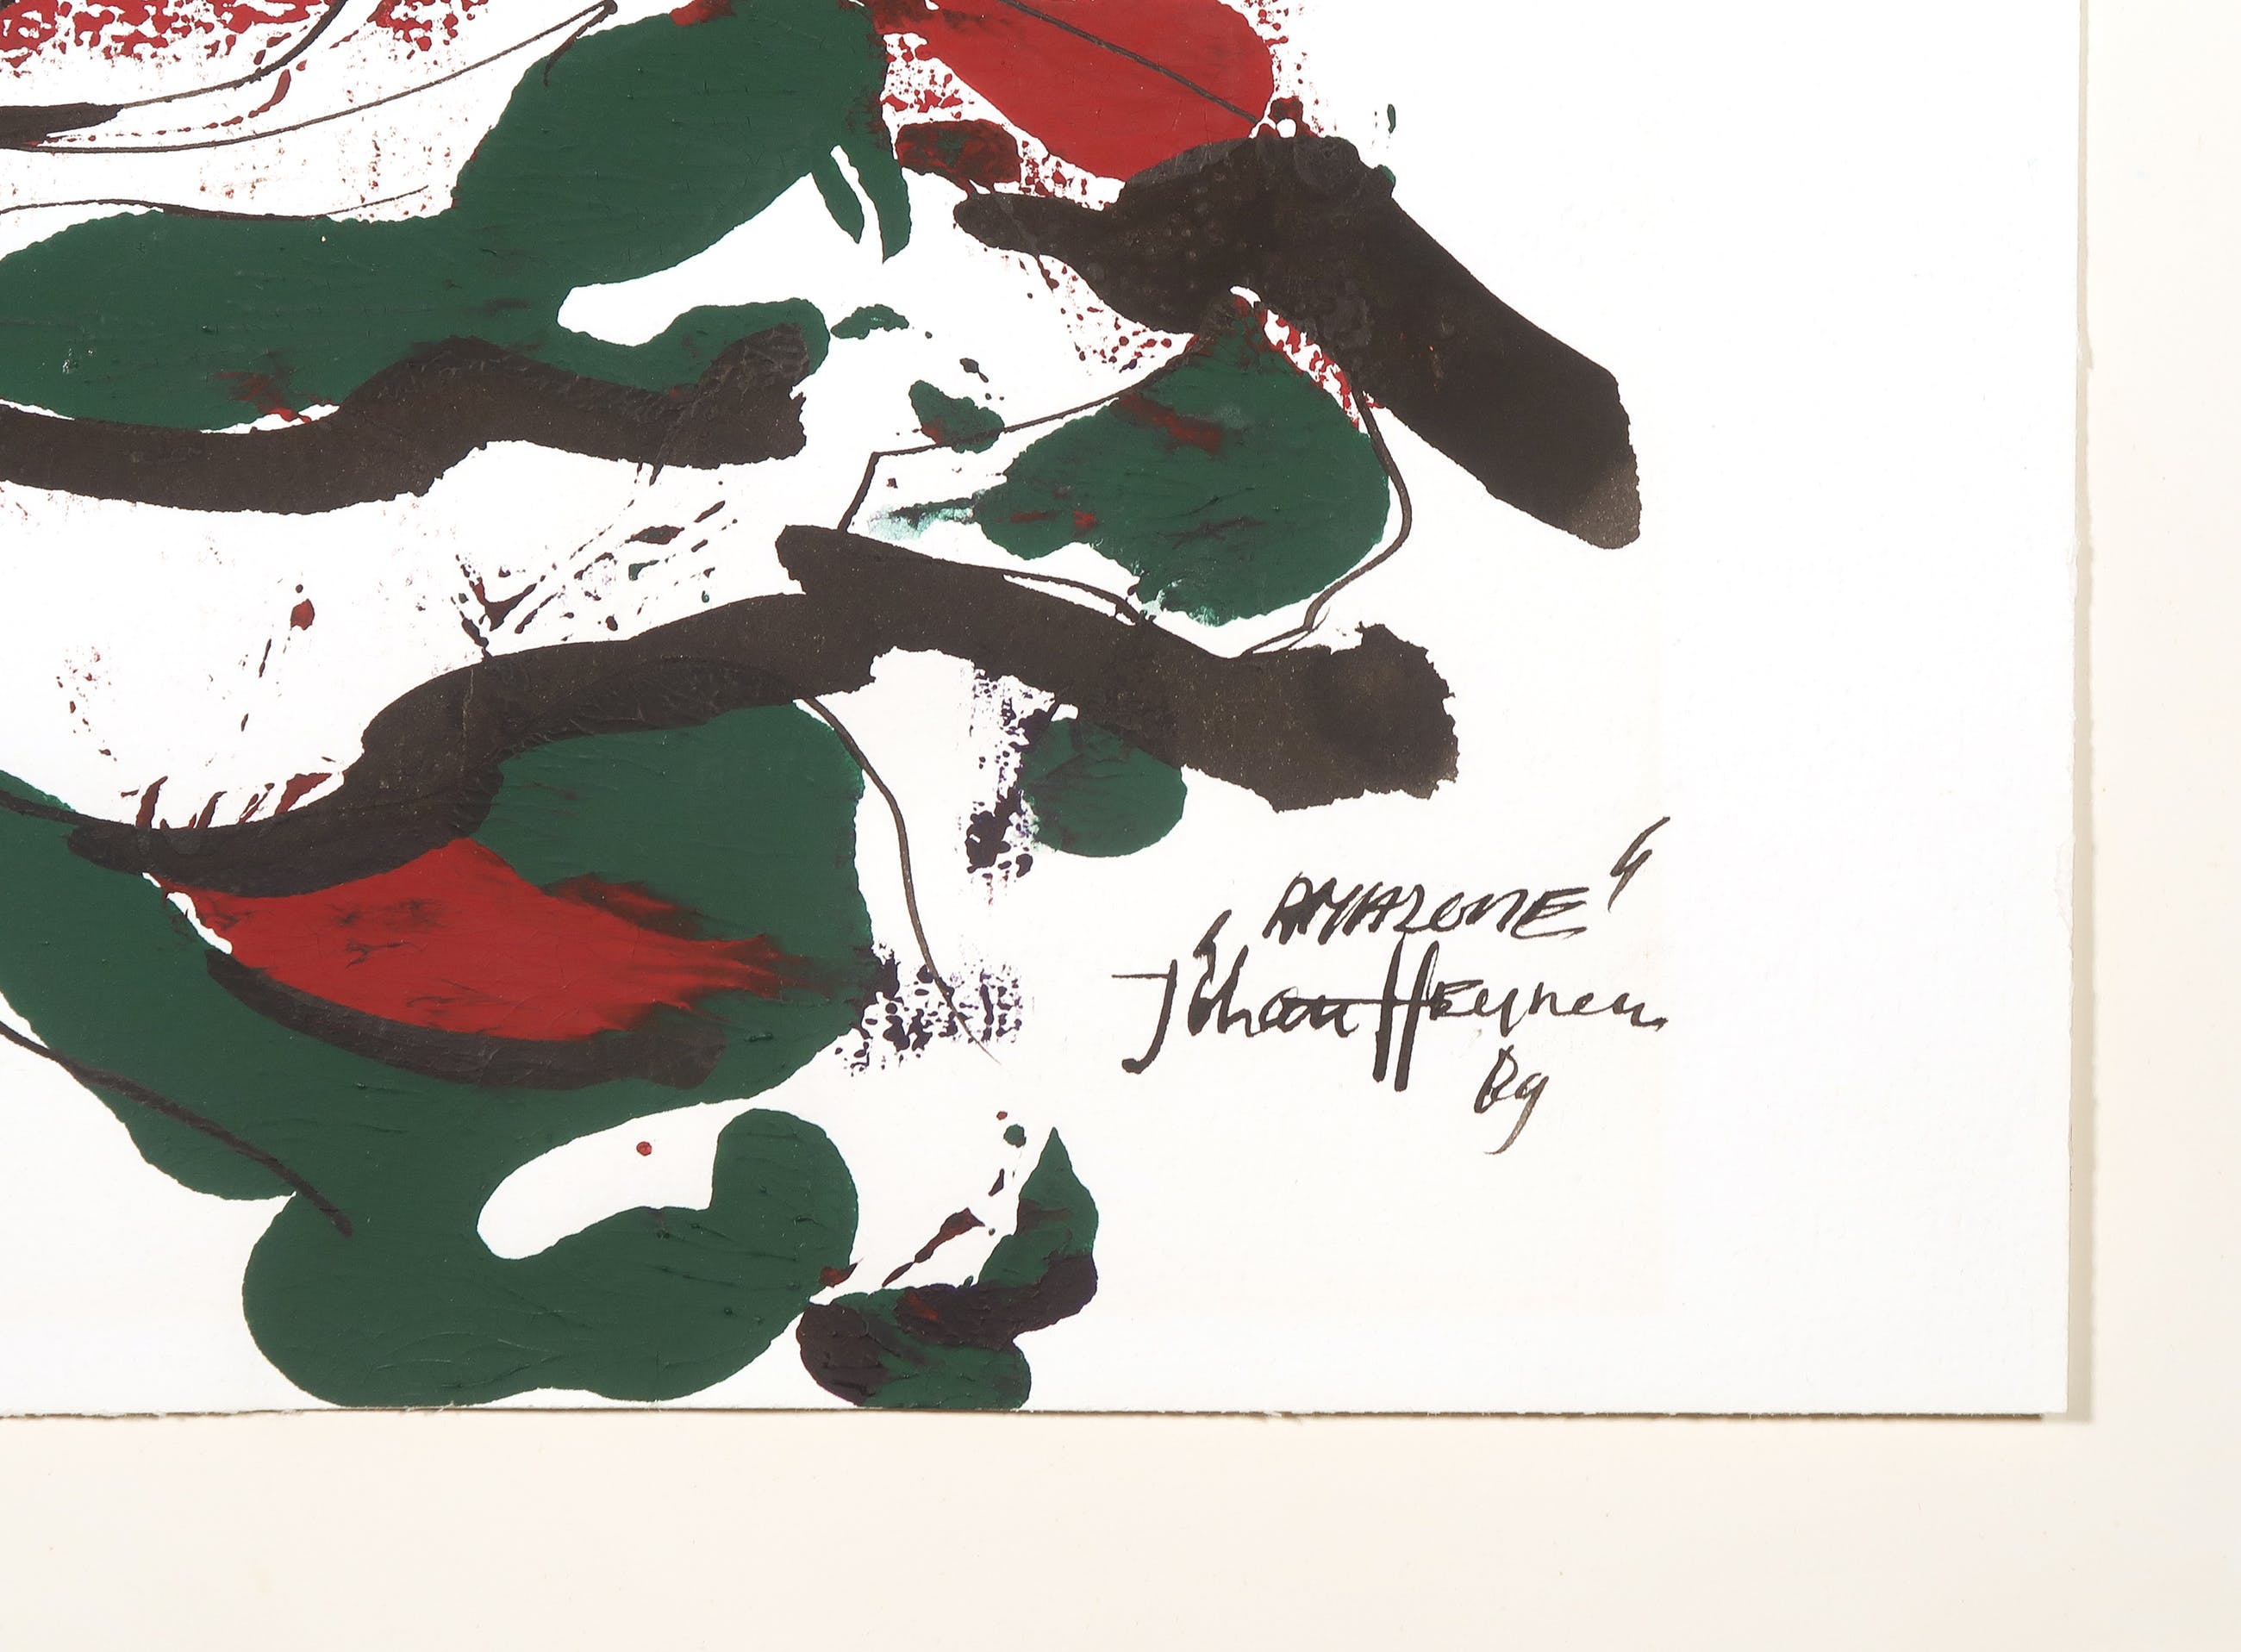 "AMAZONE"
Johan Heynen
89